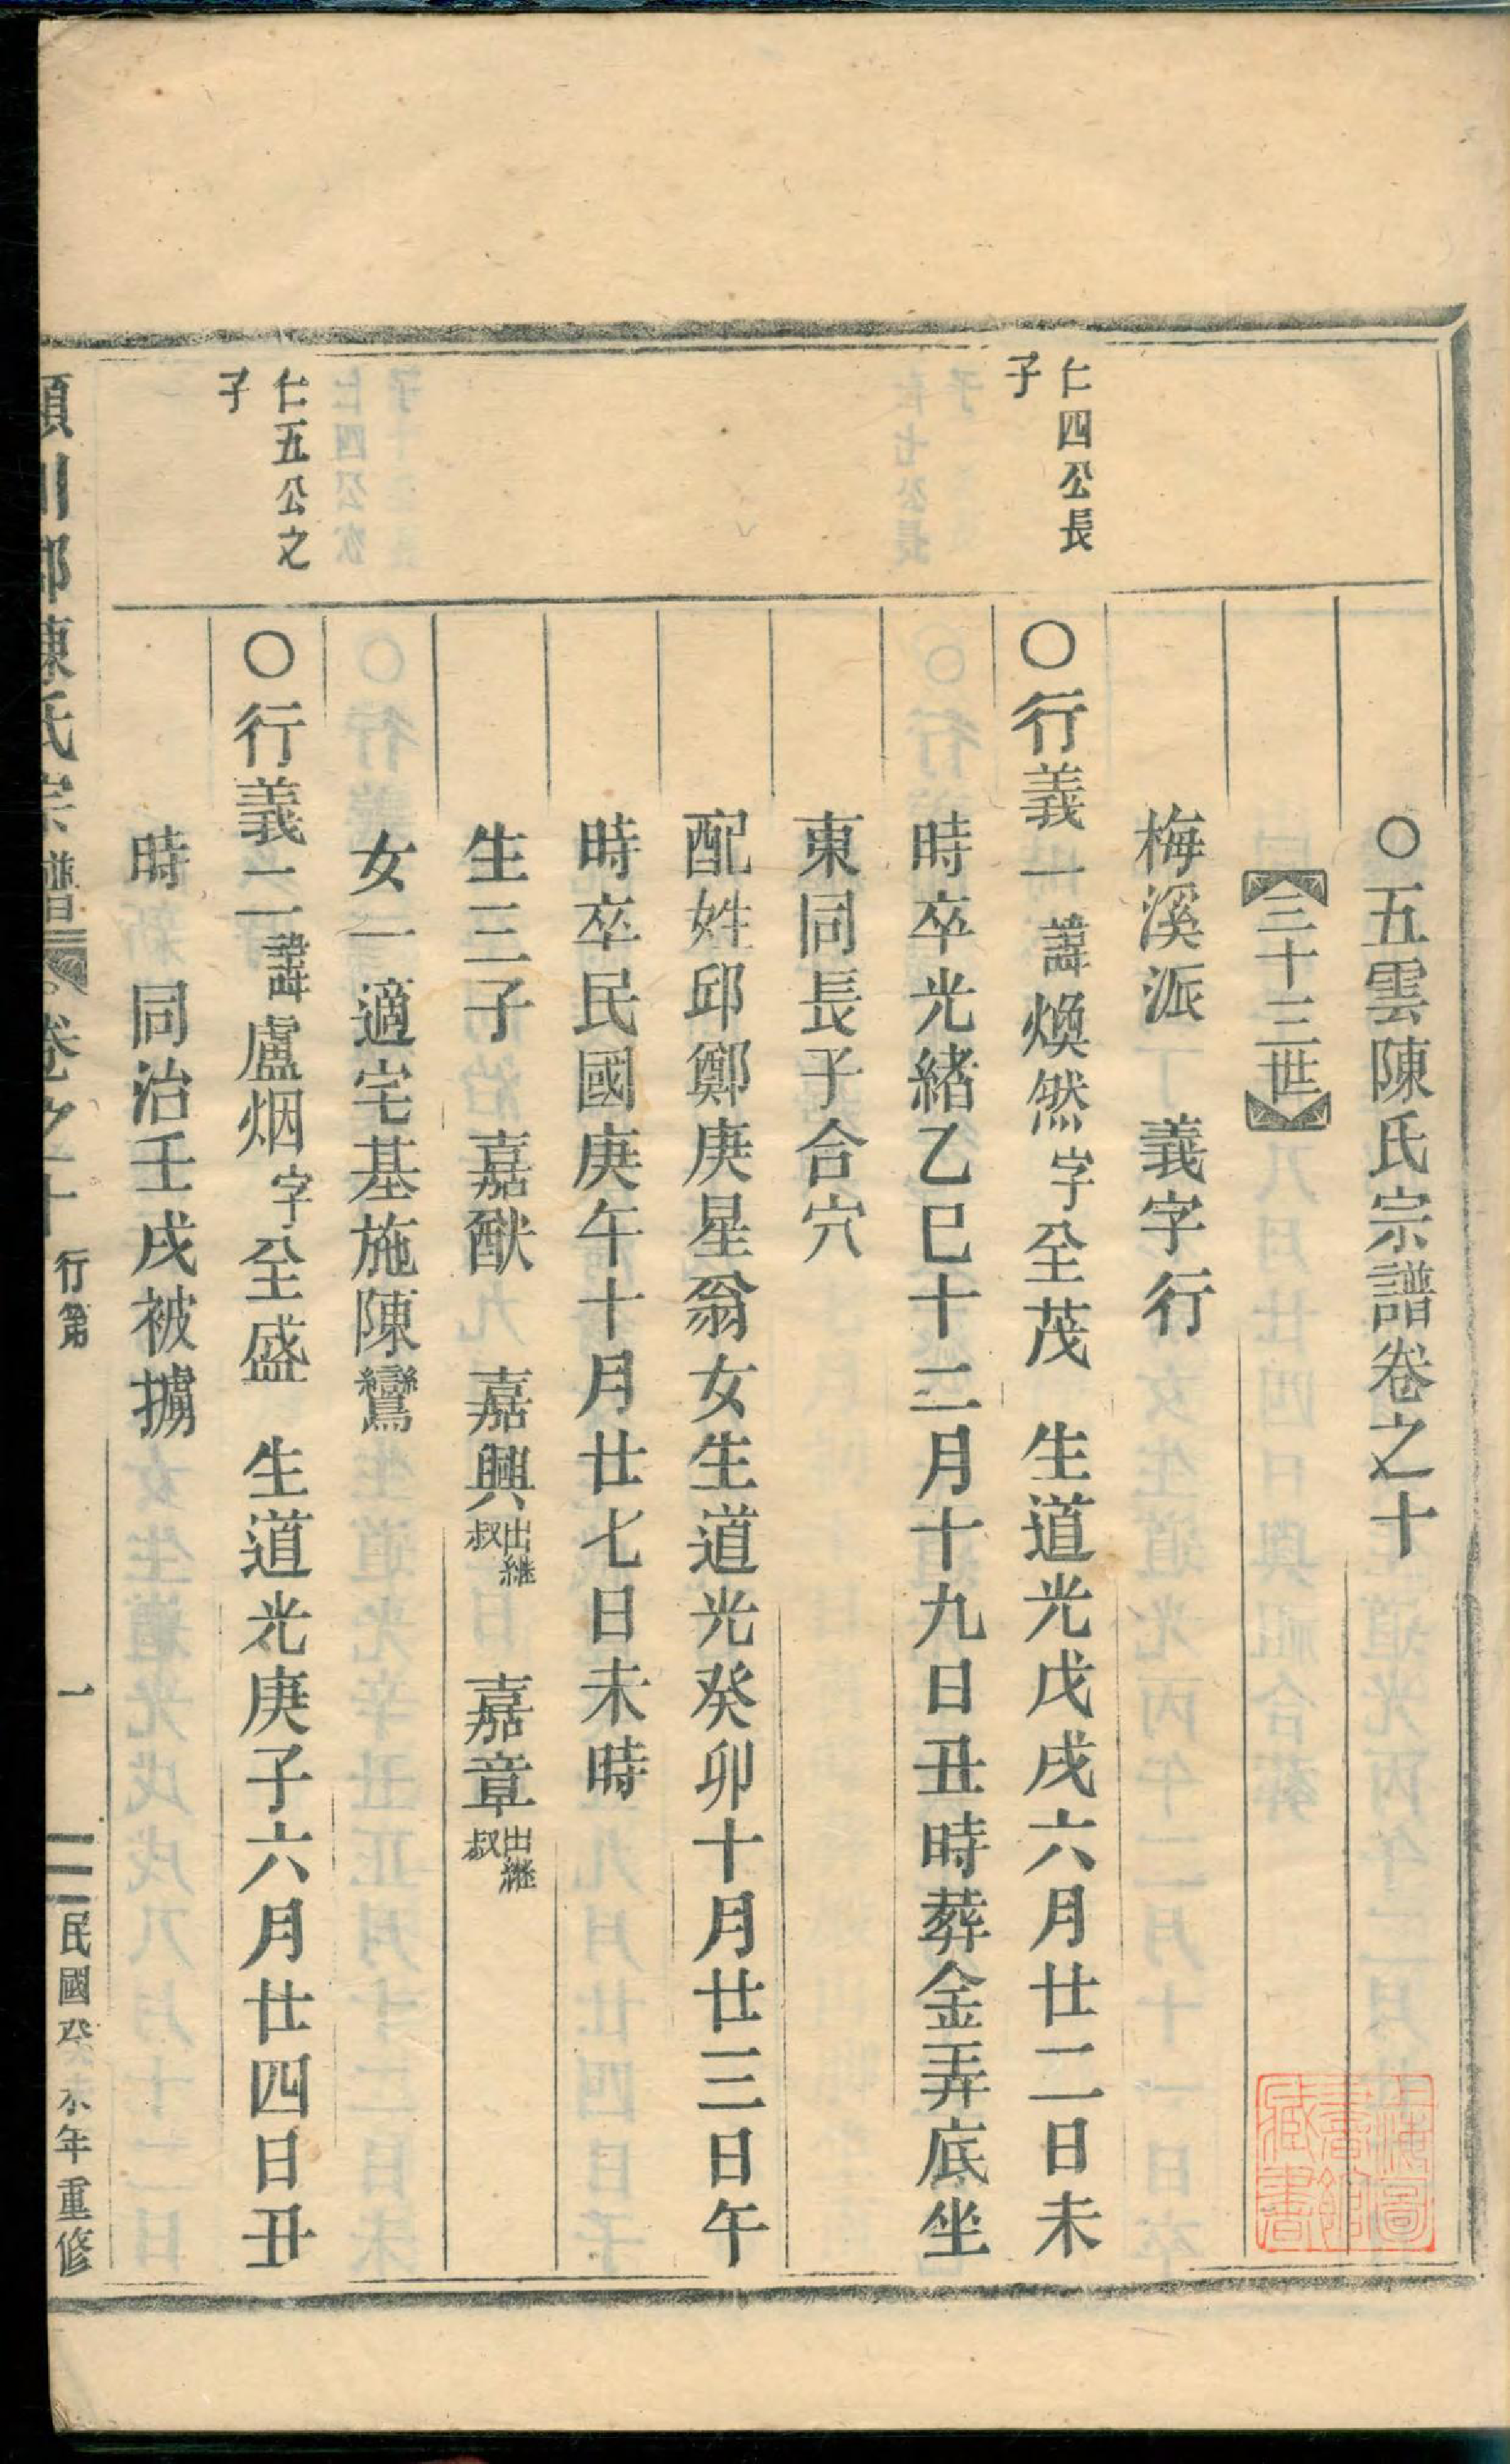 ○五雲陳氏宗譜卷之十
三十三世
梅溪派 義字行
仁四公長
子
○行義一諱煥然字至茂 生道光戊戌六月廿二日未
時卒光緒乙巳十二月十九日丑時葬金弄底坐
東同長子合穴
配姓邱鄭庚星翁女生道光癸卯十月廿三日午
時卒民國庚午十月廿七日未時
生三子 嘉猷 嘉興出繼叔 嘉章出繼叔
女一適宅基施陳鸞
仁五公之
子
○行義二諱盧烟字至盛 生道光庚子六月廿四日丑
時 同治壬戌被擄
川郡陳氏宗譜 卷之十 行第 一 民國癸未年重修
上海圖書館藏書